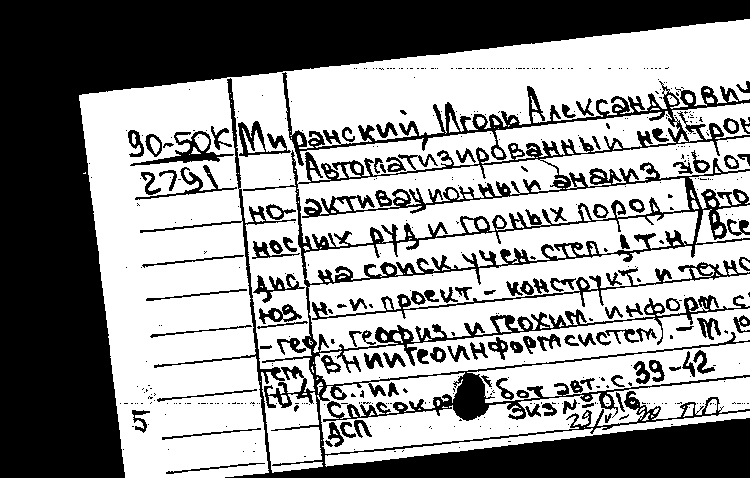 90-50К Миранский, Игорь Александрович
2791 Автоматизированный нейтрон
но-активационный анализ золот
носных руд и горных пород: Авто
дис. на соиск. учен. степ. д.т.н. / Все
юз. н.-и. проект.- конструкт. и техно
- геол., геофиз. и геохим. информ. с
тем (ВНИИГеоинформсистем). - М.,
[1], 42 с.: ил.
Список ра бот авт.: с. 39-42
Экз № 016
ДСП
29/V-90